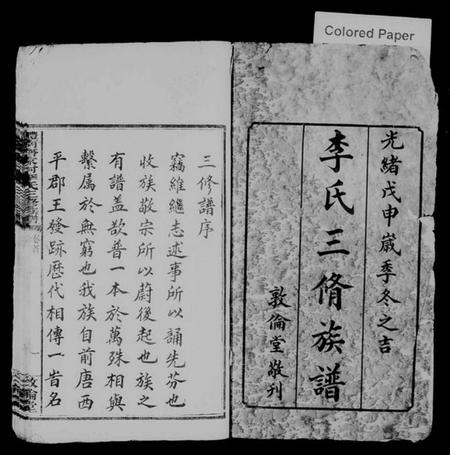 Colored Paper
光緒戊申嵗季冬之吉
李氏三脩族譜
敦倫堂敬刊
三修譜序
竊維繼志述事所以誦先芬也
收族敬宗所以蔚後起也族之
有譜蓋欲普一本於萬殊相與
繫属於無窮也我族自前唐西
平郡王發跡歷代相傳一昔名
敦倫堂